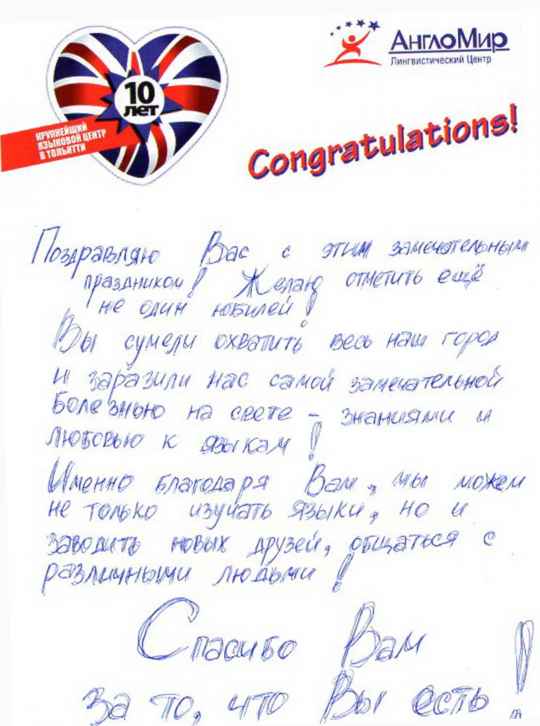 10
лет
КРУПНЕЙШИЙ
ЯЗЫКОВОЙ ЦЕНТР
В ТОЛЬЯТТИ
АнглоМир
Лингвистический Центр
Congratulations!
Поздравляю Вас с этим замечательным
праздником! Желаю отметить ещё
не один юбилей!
Вы сумели охватить весь наш город
и заразили нас самой замечательной
болезнью на свете – знаниями и
любовью к языкам!
Именно благодаря Вам, мы можем
не только изучать языки, но и
заводить новых друзей, общаться с
различными людьми!
Спасибо Вам
за то, что Вы есть!